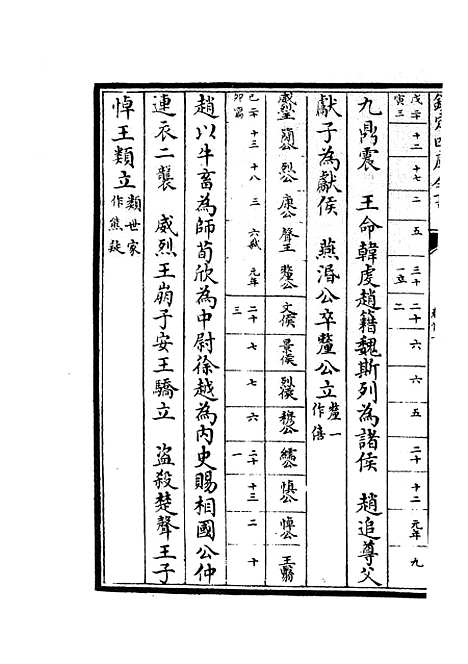 欽定四庫全書
戊寅 二十三 十二 十七 二 五 三十一立 二十二 六 六 五 二十 十二 元年 九
九鼎震 王命韓虔趙籍魏斯列為諸侯 趙追尊父
獻子為獻侯 燕湣公卒釐公立釐一作僖
威烈王 簡公 烈公 康公 聲王 釐公 文侯 景侯 烈侯 穆公 繻公 慎公 悼公 王翳
己卯 二十四崩 十三 十八 三 六弒 元年 二十三 七 七 六 二十一 十三 二 十
趙以牛畜為師荀欣為中尉徐越為內史賜相國公仲
連衣二襲 威烈王崩子安王驕立 盜殺楚聲王子
悼王類立類世家作熊疑